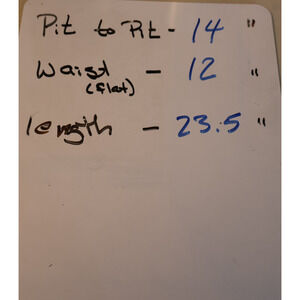 Pit to Pit - 14 "
Waist - 12 "
(flat)
length - 23.5 "